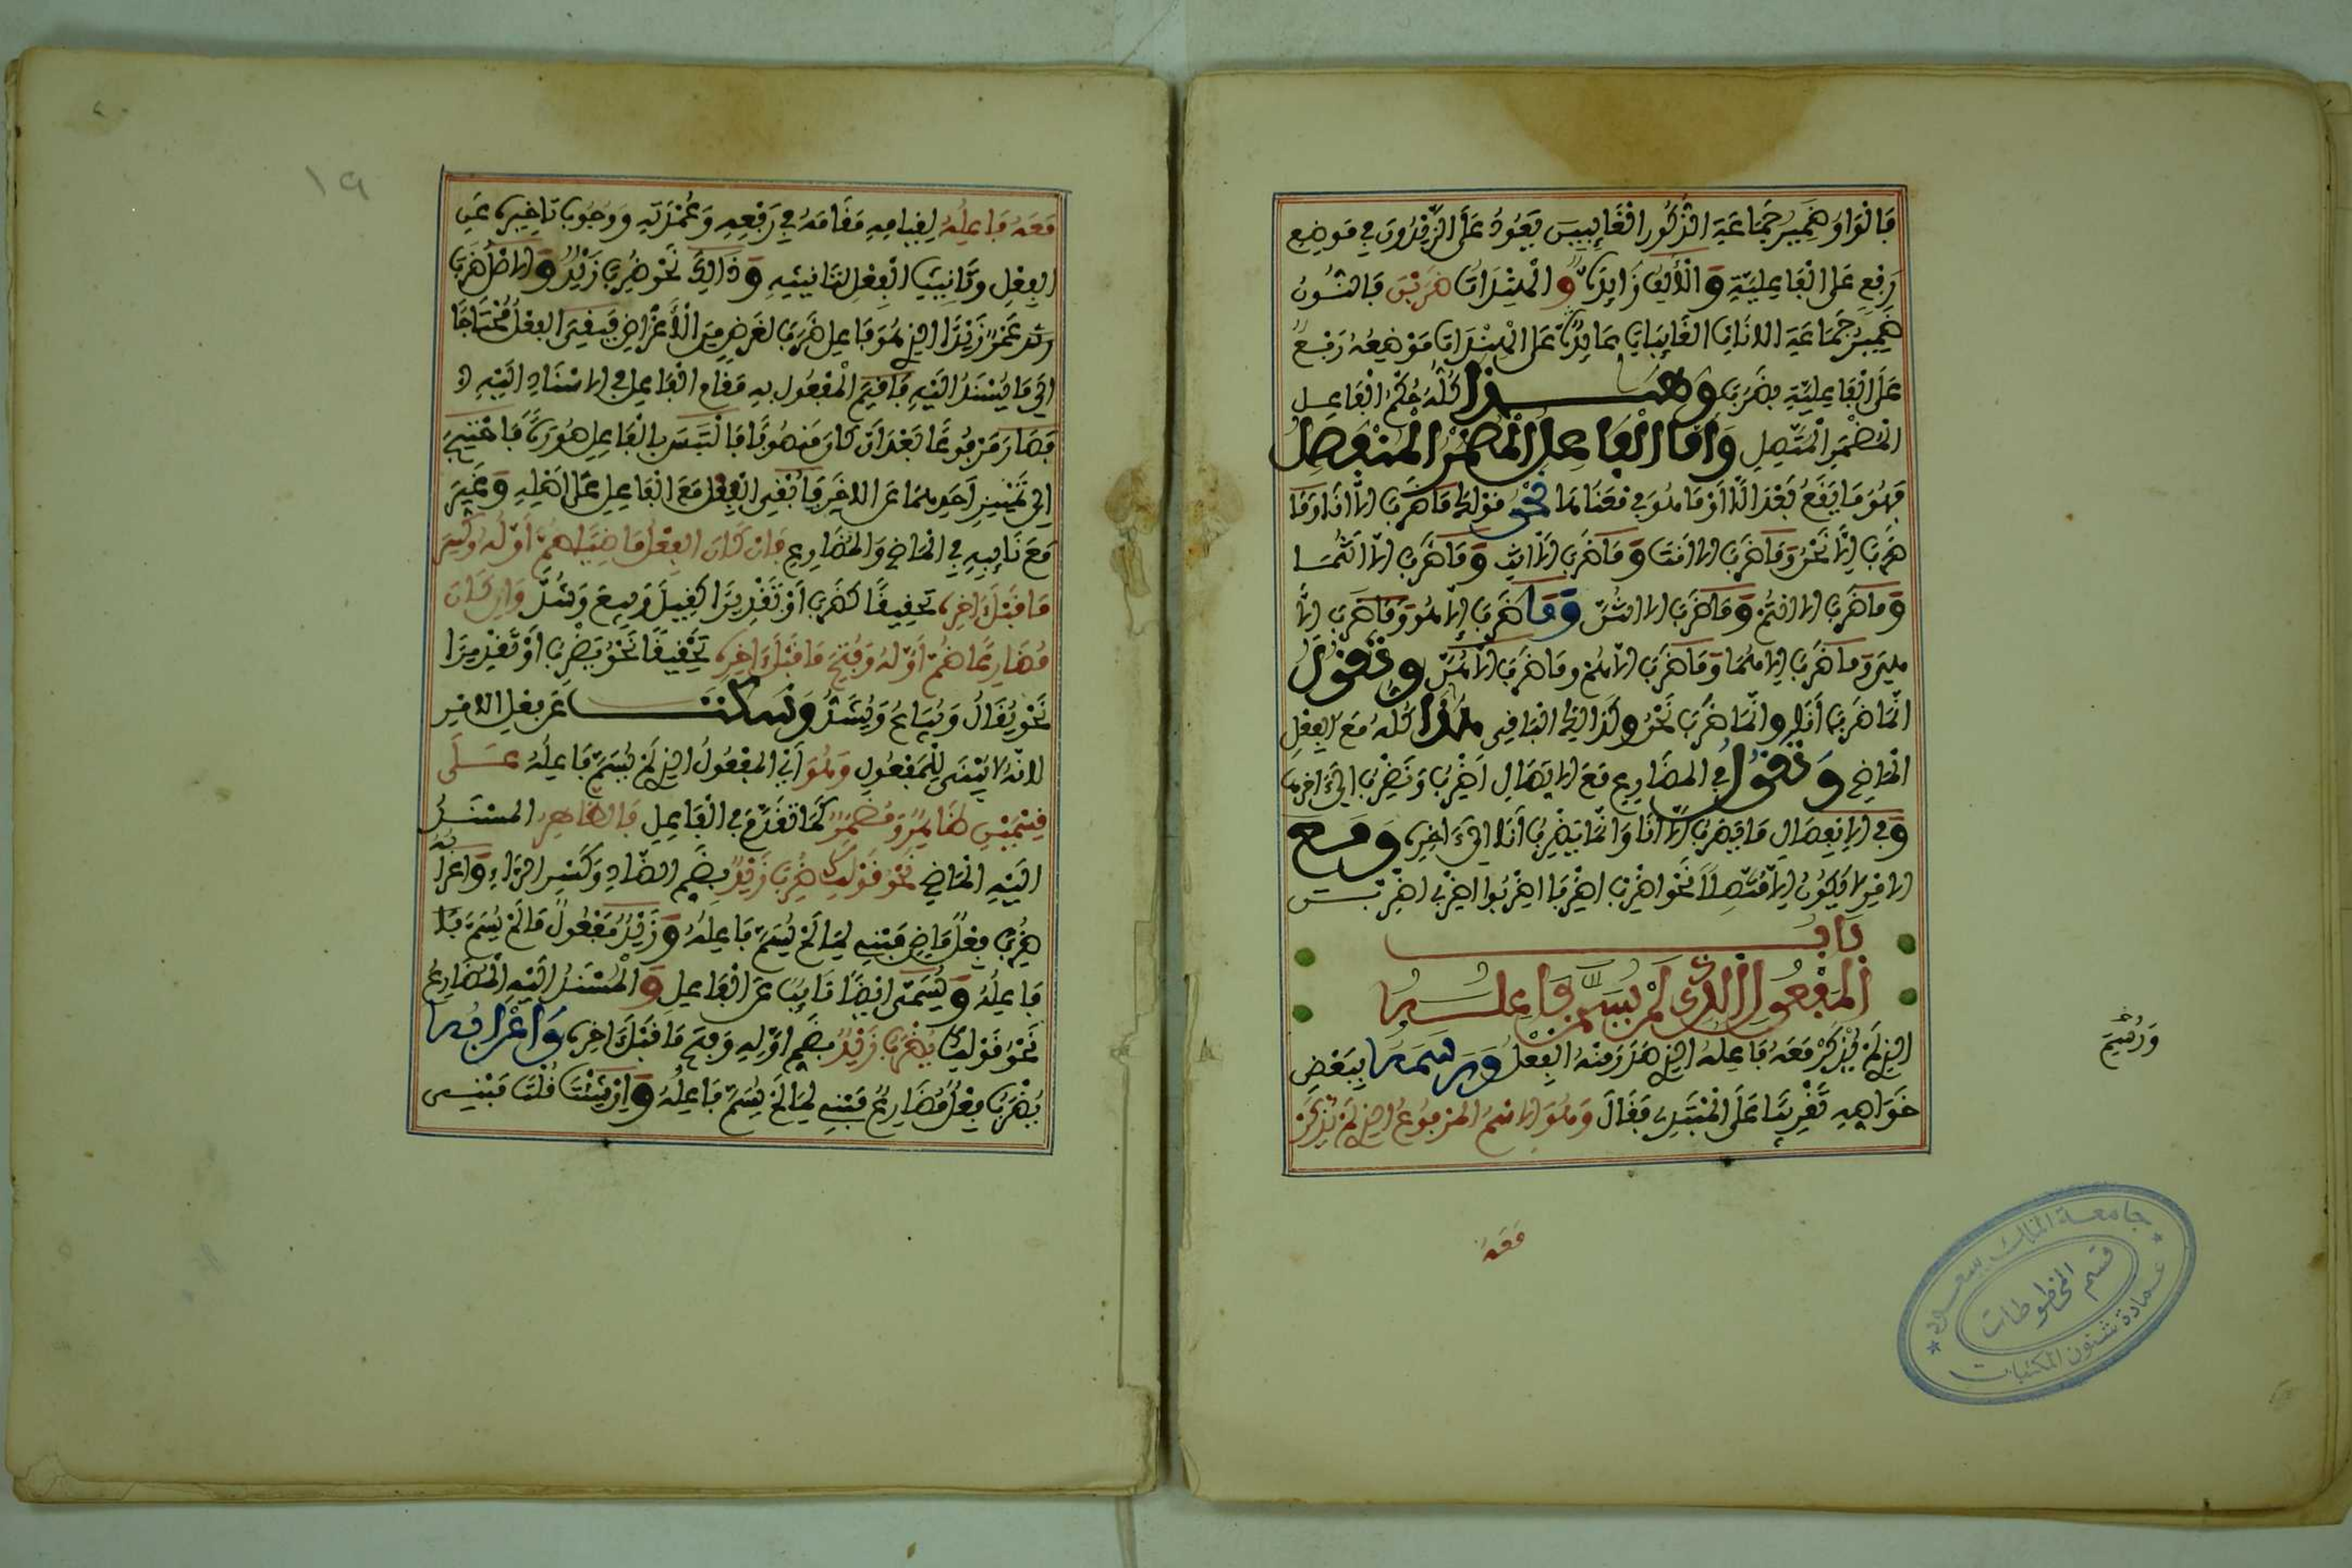 فالواو ضمير جماعة الذكور الغايبين يعود على الزيدون في موضع
رفع على الفاعلية والألف زايدة والهندات ضربن فالنون
ضمير جماعة الاناث الغايبات عايد على الهندات موضعه رفع
على الفاعلية بضرب وهذا كله حكم الفاعل
المضمر المتصل وأما الفاعل المضمر المنفصل
فهو ما يقع بعد الا أو ما هو في معناها نحو قولك ما ضرب الا انا وما
ضرب الا نحن وما ضرب الا انت وما ضرب الا انت وما ضرب الا انتما
وما ضرب الا انتم وما ضرب الا انتن وما ضرب إلا هو وما ضرب الا
هي وما ضرب الا هما وما ضرب الا هم وما ضرب الا هن وتقول
انما ضرب أنا وانما ضرب نحن وكذالك الباقي هذا كله مع الفعل
الماضي وتقول في المضارع مع الاتصال اضرب ونضرب الى ءاخرها
وفي الانفصال ما يضرب الا انا وانما يضرب أنا الى ءاخره ومع
الامر لا يكون الا متصلا نحو اضرب اضربا اضربوا اضربي اضربن
باب
المفعول الذي لم يسم فاعله
الذي لم يذكر معه فاعله الذي صدر منه الفعل ورسمه ببعض
خواصه تقريبا على المبتدي فقال وهو الاسم المرفوع الذي لم يذكر
معه
ورسم
جامعة الملك سعود
قسم المخطوطات
عمادة شئون المكتبات
١٩
معه فاعله لقيامه مقامه في رفعه وعمدته ووجوب تاخيره عن
الفعل وتانيث الفعل لتانيثه وذالك نحو ضرب زيد والاصل ضرب
عمرو زيدا الذي هو فاعل ضرب لغرض من الأغراض فبقي الفعل محتاجا
الى ما يسند اليه فاقيم المفعول به مقام الفاعل في الاسناد اليه
فصار مرفوعا بعد ان كان منصوبا فالتبس بالفاعل صورة فاحتيج
الى تمييز احدهما عن الاخر فابقي الفعل مع الفاعل على اصله وغير
مع نايبه في الماضي والمضارع فان كان الفعل ماضيا ضم أوله وكسر
ما قبل ءاخره تحقيقا كضرب أو تقديرا كقيل وبيع وشد وان كان
مضارعا ضم أوله وفتح ما قبل ءاخره تحقيقا نحو يضرب أو تقديرا
نحو يقال ويباع ويشد وسكت عن فعل الامر
لانه لا يبنى للمفعول وهو أي المفعول الذي لم يسم فاعله على
قسمين ظاهر ومضمر كما تقدم في الفاعل فالظاهر المسند
اليه الماضي نحو قولك ضرب زيد بضم الضاد وكسر الراء واعرابه
ضرب فعل ماض مبني لما لم يسم فاعله وزيد مفعول ما لم يسم
فاعله ويسمى ايضا نايبا عن الفاعل والمسند اليه المضارع
نحو قولك يضرب زيد بضم أوله وفتح ما قبل ءاخره واعرابه
يضرب فعل مضارع مبني لما لم يسم فاعله وان شئت قلت مبني